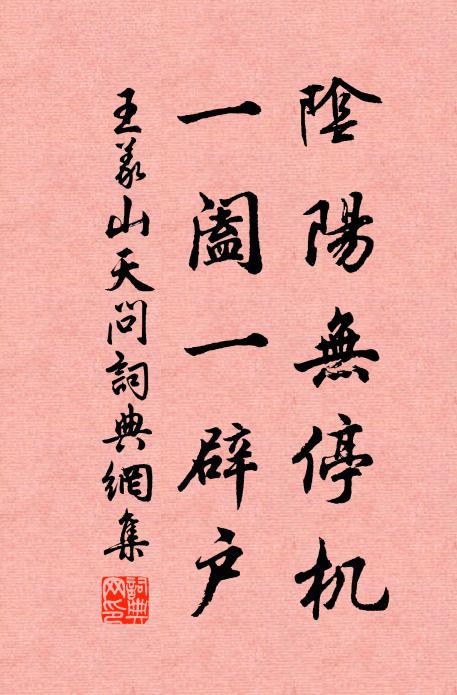 陰陽無停机
一阖一辟户
王义山天問詞典網集
詞典网印